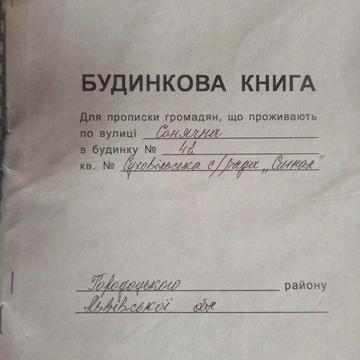 БУДИНКОВА КНИГА
Для прописки громадян, що проживають
по вулиці Сонячна
в будинку №
кв. № Суховільська с/рада „
Городоцького району
Львівської обл